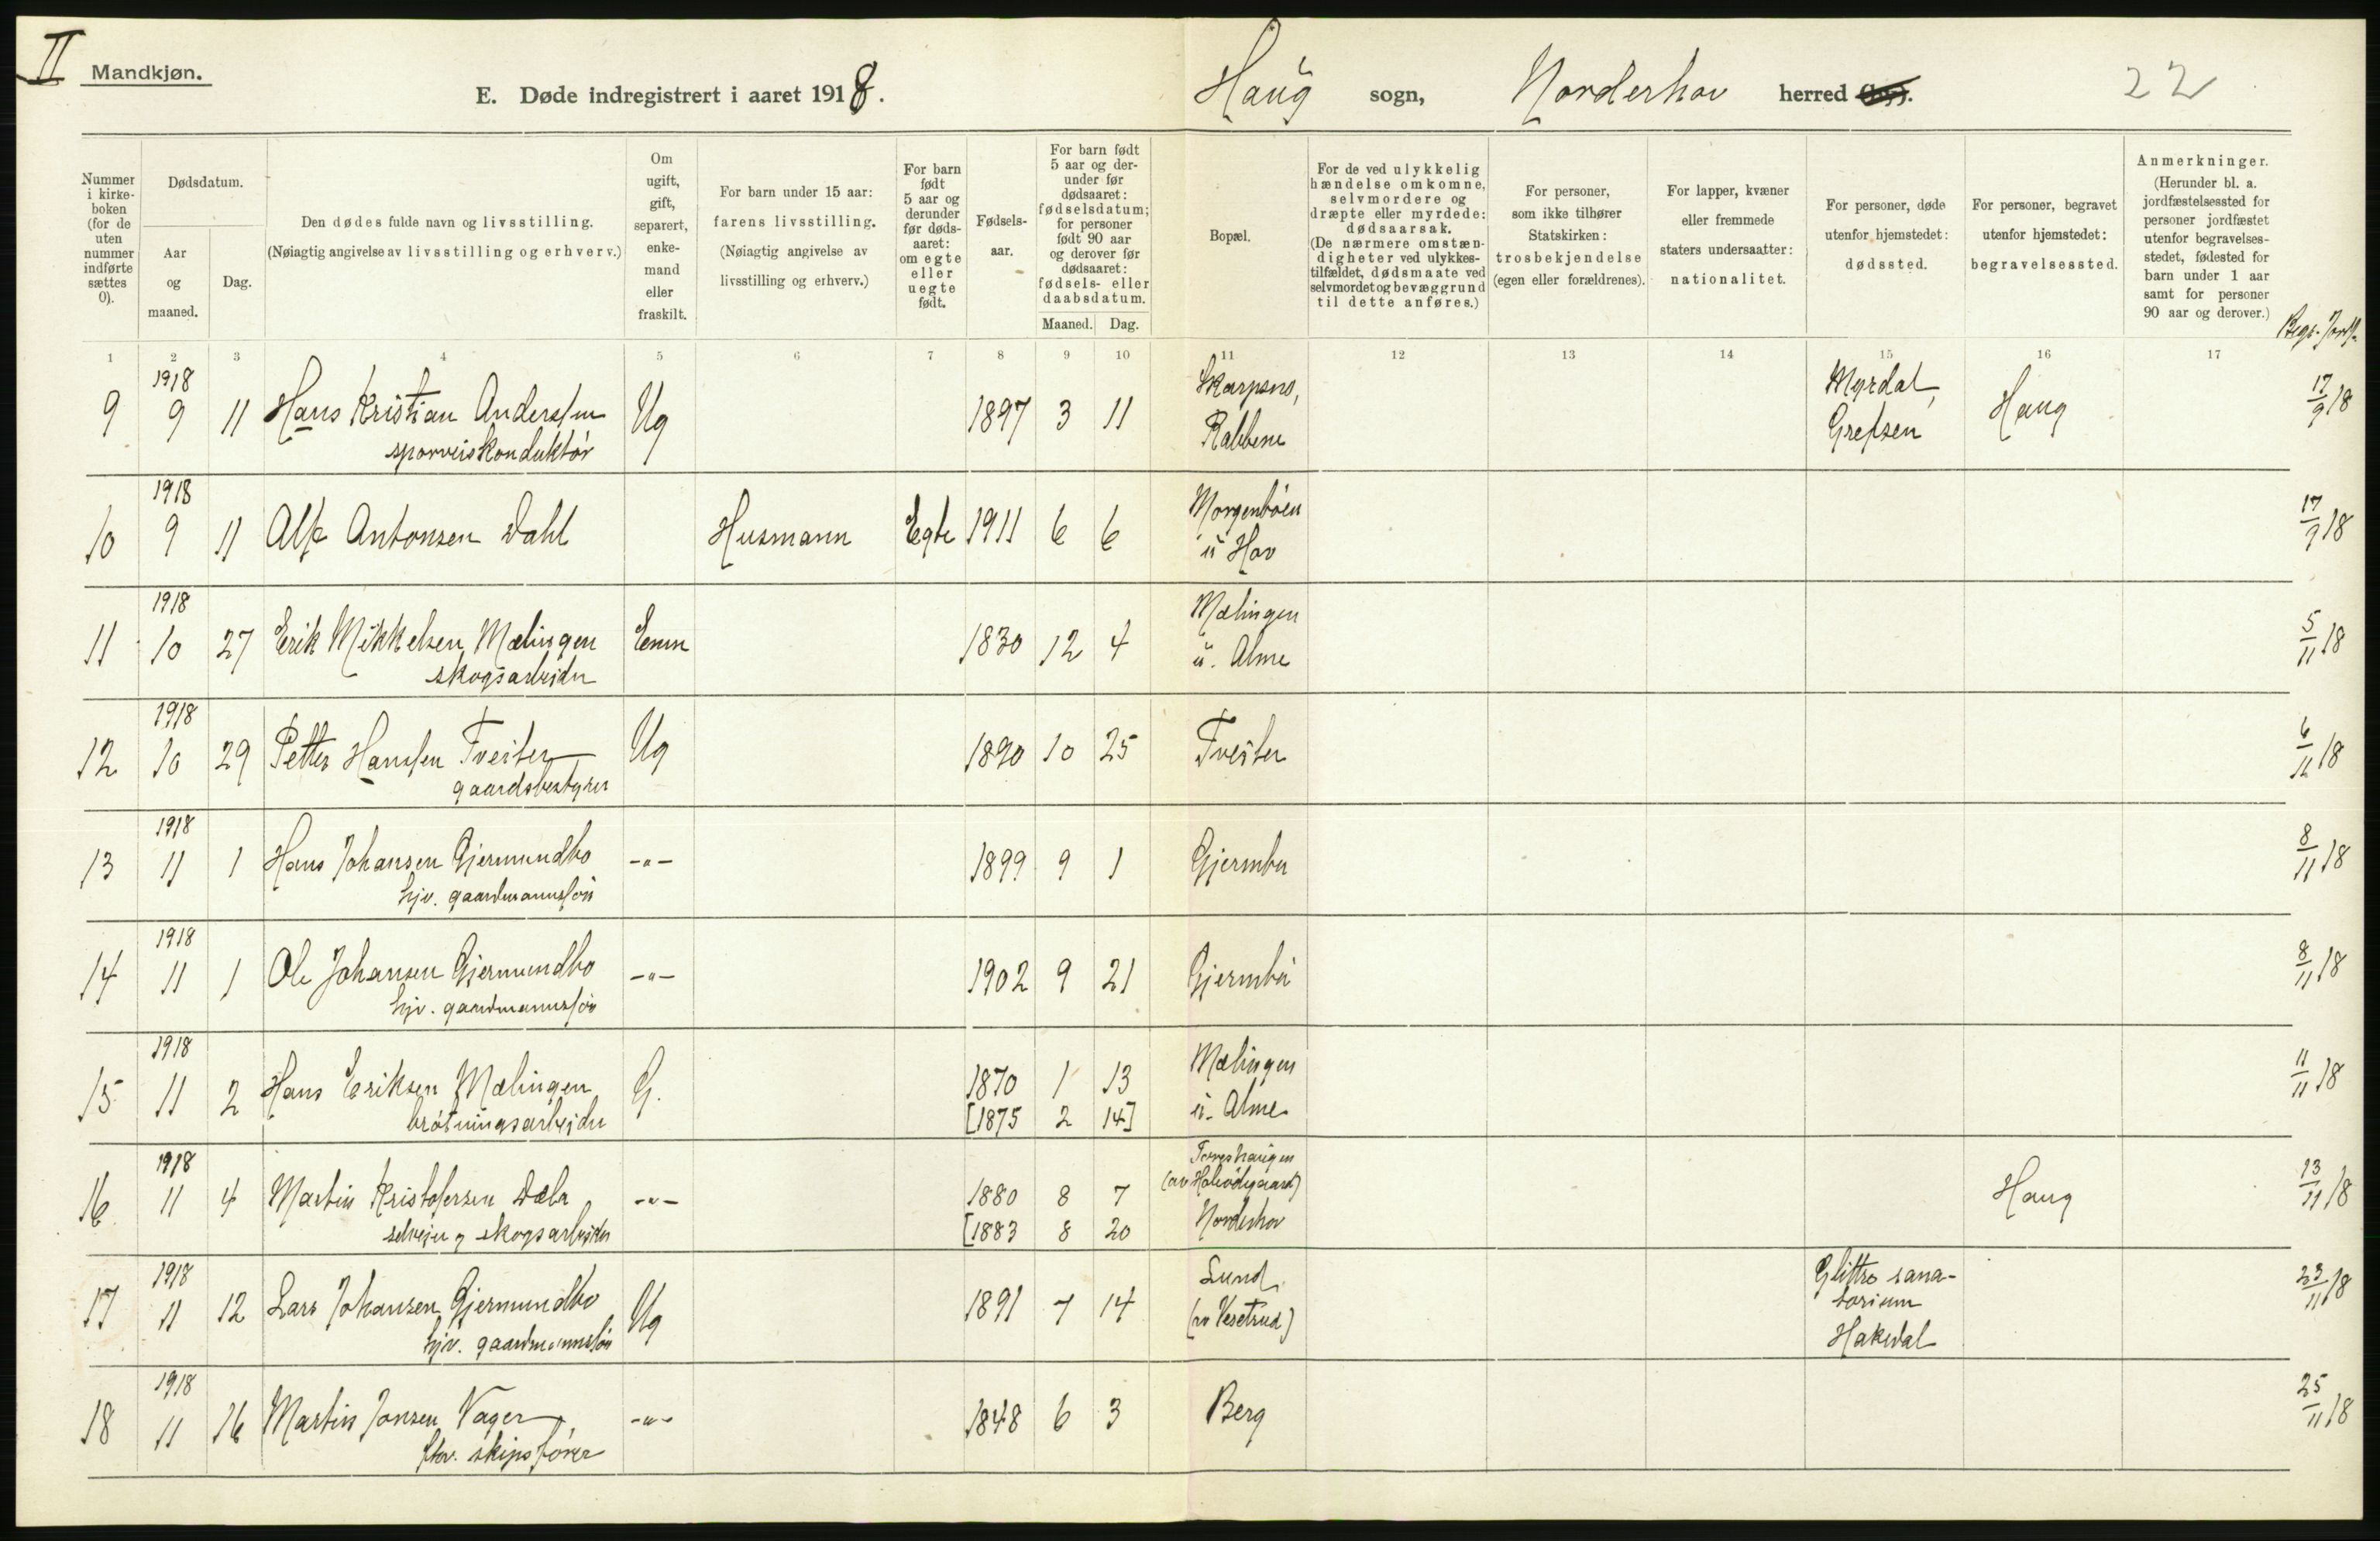 II Mandkjøn.
E. Døde indregistrert i aaret 1918.
Haug sogn, Norderhov herred 22
Nummer i kirkeboken (for de uten nummer indførte sættes 0).
Dødsdatum.
Aar og maaned.
Dag.
Den dødes fulde navn og livsstilling.
(Nøiagtig angivelse av livsstilling og erhverv.)
Om ugift, gift, separert, enkemand eller fraskilt.
For barn under 15 aar: farens livsstilling. (Nøiagtig angivelse av livsstilling og erhverv.)
For barn født 5 aar og derunder før dødsaaret: om egte eller uegte født.
Fødselsaar.
For barn født 5 aar og derunder før dødsaaret: fødselsdatum; for personer født 90 aar og derover før dødsaaret: fødsels- eller daabsdatum.
Maaned. Dag.
Bopæl.
For de ved ulykkelig hændelse omkomne, selvmordere og dræpte eller myrdede: dødsaarsak. (De nærmere omstændigheter ved ulykkestilfældet, dødsmaate ved selvmordet og bevæggrund til dette anføres.)
For personer, som ikke tilhører Statskirken: trosbekjendelse (egen eller forældrenes).
For lapper, kvæner eller fremmede staters undersaatter: nationalitet.
For personer, døde utenfor hjemstedet: dødssted.
For personer, begravet utenfor hjemstedet: begravelsessted.
Anmerkninger. (Herunder bl. a. jordfæstelsessted for personer jordfæstet utenfor begravelsesstedet, fødested for barn under 1 aar samt for personer 90 aar og derover.)
1 2 3 4 5 6 7 8 9 10 11 12 13 14 15 16 17
1918
9 9 11 Hans Kristian Anderssen Ug 1897 3 11 Skarpsno, Myrdal, Haug 17/9 18
sporveiskonduktør Rabbene Grefsen
1918
10 9 11 Alf Antonsen Dahl Husmann Egte 1911 6 6 Morgenbøen 17/9 18
u Hov
1918
11 10 27 Erik Mikkelsen Mælingen Enm 1830 12 4 Mælingen 5/11 18
skogsarbeider u. Alme
1918
12 10 29 Petter Hanssen Tveiter Ug 1890 10 25 Tveiter 6/11 18
gaardsbestyrer
1918
13 11 1 Hans Johansen Gjermundbo -"- 1899 9 1 Gjermbu 8/11 18
hjv. gaardmannssøn
1918
14 11 1 Ole Johansen Gjermundbo -"- 1902 9 21 Gjermbu 8/11 18
hjv. gaardmannssøn
1918
15 11 2 Hans Eriksen Mælingen G. 1870 1 13 Mælingen 11/11 18
brøtningsarbeider [1875 2 14] u. Alme
1918
16 11 4 Martin Kristofersen Dæla -"- 1880 8 7 Haug 13/11 18
selveier og skogsarbeider [1883 8 20 Norderhov
1918
17 11 12 Lars Johansen Gjermundbo Ug 1891 7 14 Lund Glittre sana- 23/11 18
hjv. gaardmannssøn (av Vesetrud) torium
Hakedal
1918
18 11 16 Martin Jonsen Vager -"- 1848 6 3 Berg 25/11 18
fhv. skipsfører